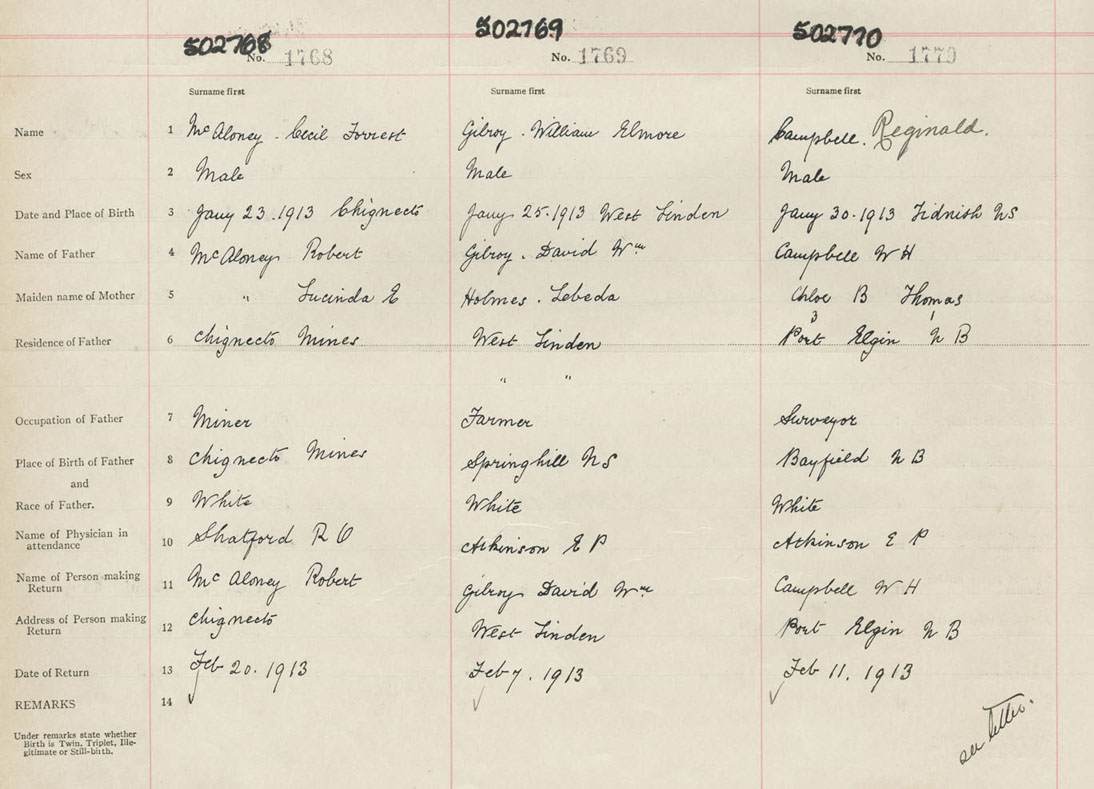 502768 502769 502770
No. 1768 No. 1769 No. 1770
Surname first Surname first Surname first
Name 1 McAloney . Cecil Forrest Gilroy . William Elmore Campbell . Reginald.
Sex 2 Male Male Male
Date and Place of Birth 3 Jany 23 . 1913 Chignecto Jany 25 . 1913 West Linden Jany 30 . 1913 Tidnish NS
Name of Father 4 McAloney Robert Gilroy . David Wm Campbell W H
Maiden name of Mother 5 " Lucinda E Holmes . Lebeda Chloe B Thomas
3 1
Residence of Father 6 Chignecto Mines West Linden Port Elgin N B
" "
Occupation of Father 7 Miner Farmer Surveyor
Place of Birth of Father 8 Chignecto Mines Springhill NS Bayfield N B
and
Race of Father. 9 White White White
Name of Physician in
attendance 10 Shatford R O Atkinson E P Atkinson E P
Name of Person making
Return 11 McAloney Robert Gilroy David Wm Campbell W H
Address of Person making
Return 12 Chignecto West Linden Port Elgin N B
Date of Return 13 Feb 20 . 1913 Feb 7 . 1913 Feb 11 . 1913
REMARKS 14 see letter.
Under remarks state whether
Birth is Twin, Triplet, Ille-
gitimate or Still-birth.